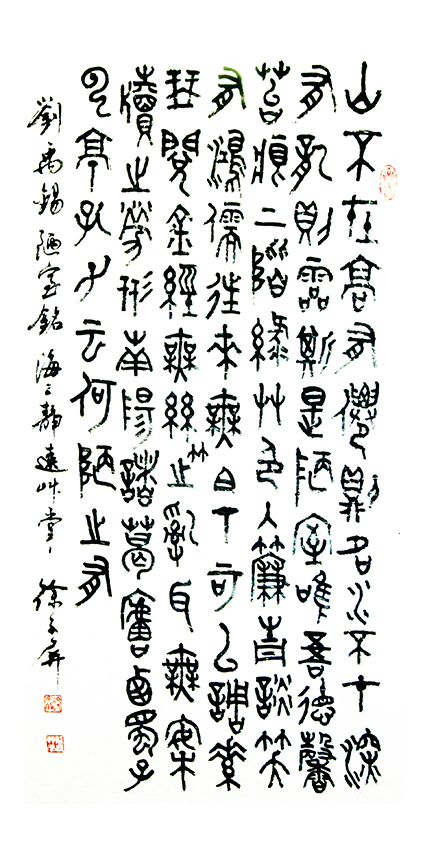 山不在高有僊則名水不在深
有龍則靈斯是陋室唯吾德馨
苔痕上階綠艸色入簾青談笑
有鴻儒往來無白丁可以調素
琴閱金經無絲竹之亂耳無案
牘之勞形南陽諸葛廬西蜀子
雲亭孔子云何陋之有
劉禹錫陋室銘 海上靜遠艸堂 徐